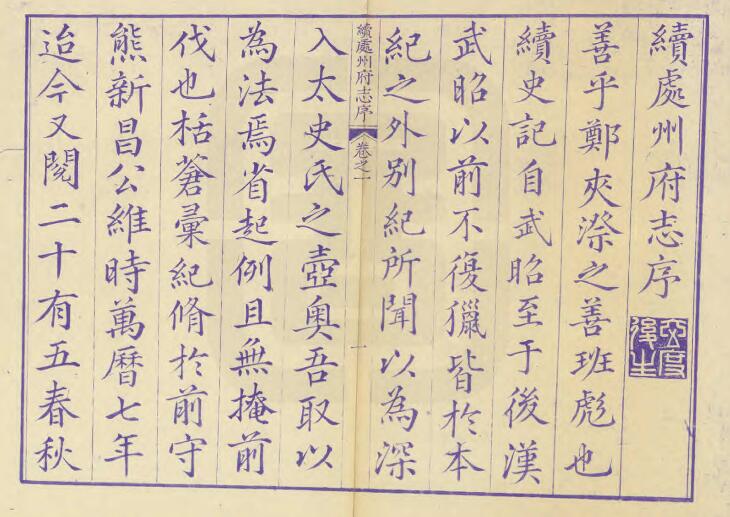 續處州府志序
善乎鄭夾漈之善班彪也
續史記自武昭至于後漢
武昭以前不復獵皆於本
紀之外别紀所聞以為深
續處州府志序 卷之一 一
入太史氏之壺奥吾取以
為法焉省起例且無掩前
伐也栝蒼彚紀脩於前守
熊新昌公維時萬曆七年
迨今又閱二十有五春秋